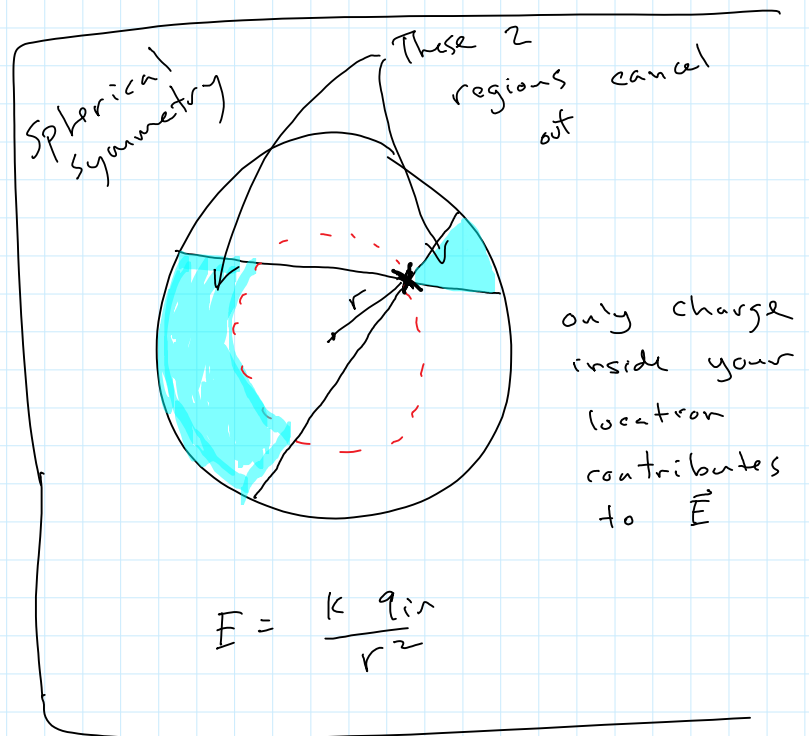 Spherical
symmetry
These 2
regions cancel
out
r
only charge
inside your
location
contributes
to E⃗
E = k qin / r²